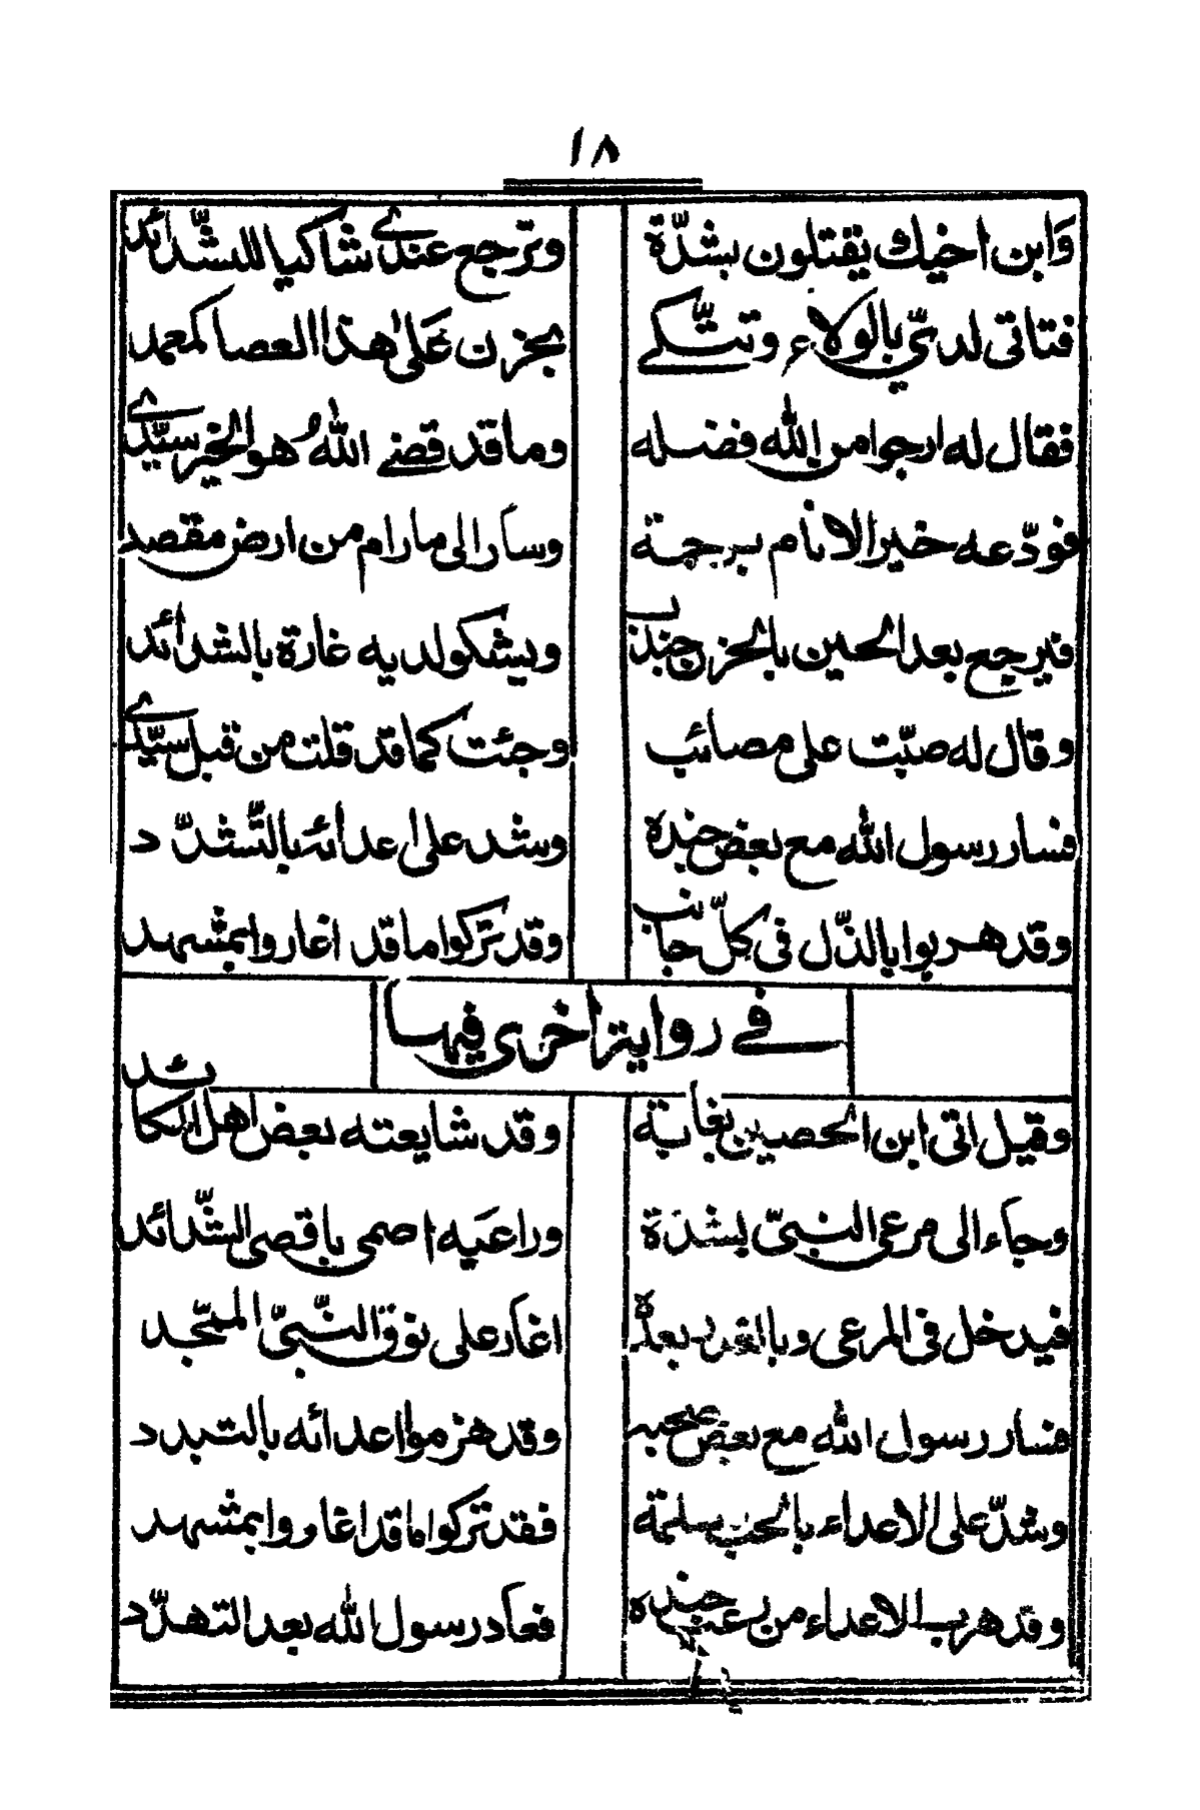 ١٨
وَابن اخيك يقتلون بشدّة وترجع عندي شاكيا للشّدائد
فتاتى لديّ بالولاء وتتّكي بحزن عَلى هذا العصا كمعمد
فقال له ارجوا من الله فضله وما قد قضى اللهُ هو الخير سيّدي
فودّعه خير الانام برجمة وسار الى ما رام من ارض مقصد
فيرجع بعد الحين بالحزن جندب ويشكو لديه غارة بالشدائد
وقال له صبّت على مصائب وجئت كما قد قلت من قبل سيّدي
فسار رسول الله مع بعض جنده وشد على اعدائه بالتّشدّد
وقد هربوا بالذّل فى كلّ جانب وقد تركوا ما قد اغاروا بمشهد
في رواية اخرى فيها
وقيل اتى ابن الحصين بغابة وقد شايعته بعض اهل المكائد
وجاء الى مرعى النبىّ بشدة وراعيه اصمى باقصى الشّدائد
فيدخل فى المرعى بعدّة اغار على نوق النّبىّ الممجّد
فسار رسول الله مع بعض صحبه وقد هزموا اعدائه بالتبدد
وشدّ على الاعداء سلمة فقد تركوا ما قد اغاروا بمشهد
وقد هرب الاعداء من رعب جنده فعاد رسول الله بعد التهدّد